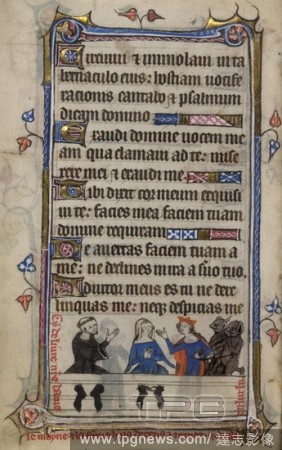 Circuiui & immolaui in ta
bernaculo eius: hostiam uocife
rationis cantabo & psalmum
dicam domino
Exaudi domine uocem me
am qua clamaui ad te: mise
rere mei & exaudi me
Tibi dixit cor meum exquisi
ui te: facies mea faciem tuam
domine requiram
Ne auertas faciem tuam a
me: ne declines in ira a suo tuo.
Adiutor meus es tu ne dere
linquas me: neq; despicias me
TPG
www.tpgnews.com/達志影像